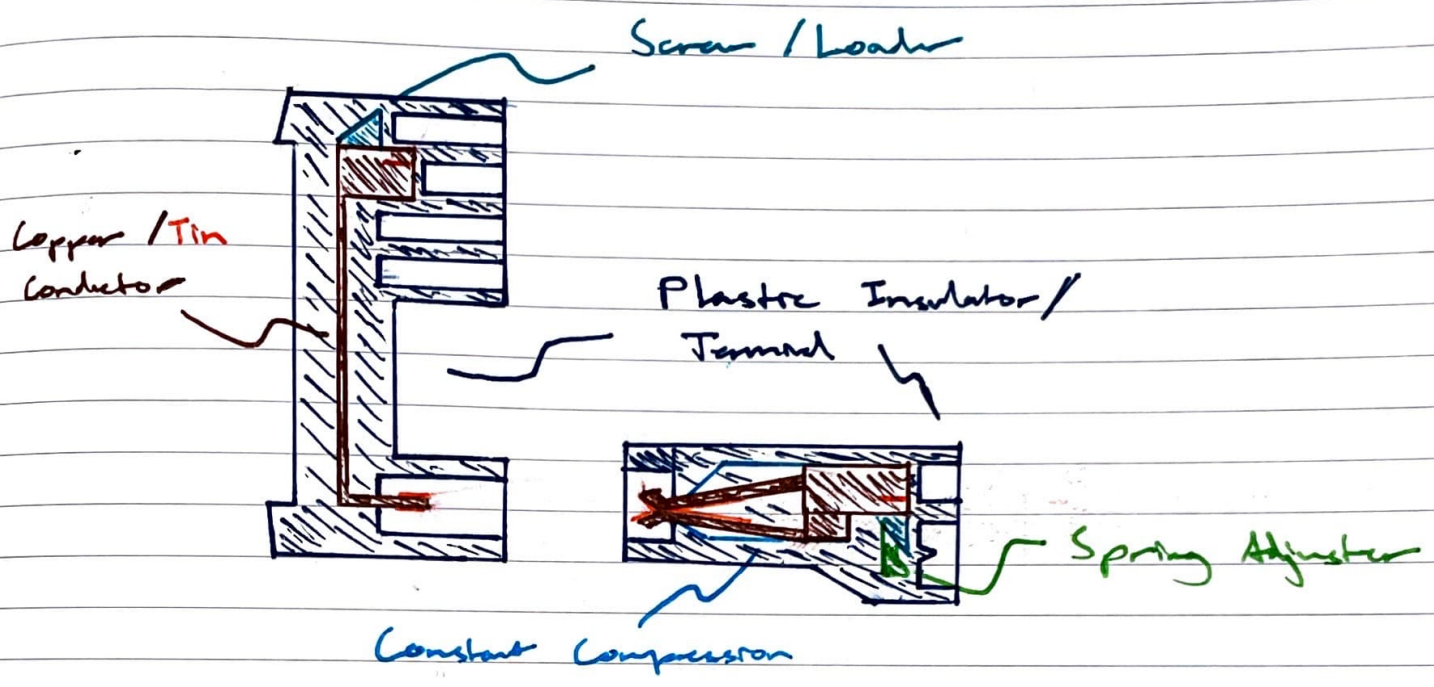 Screw / Loader
Copper / Tin
Conductor
Plastic Insulator /
Terminal
Spring Adjuster
Constant Compression